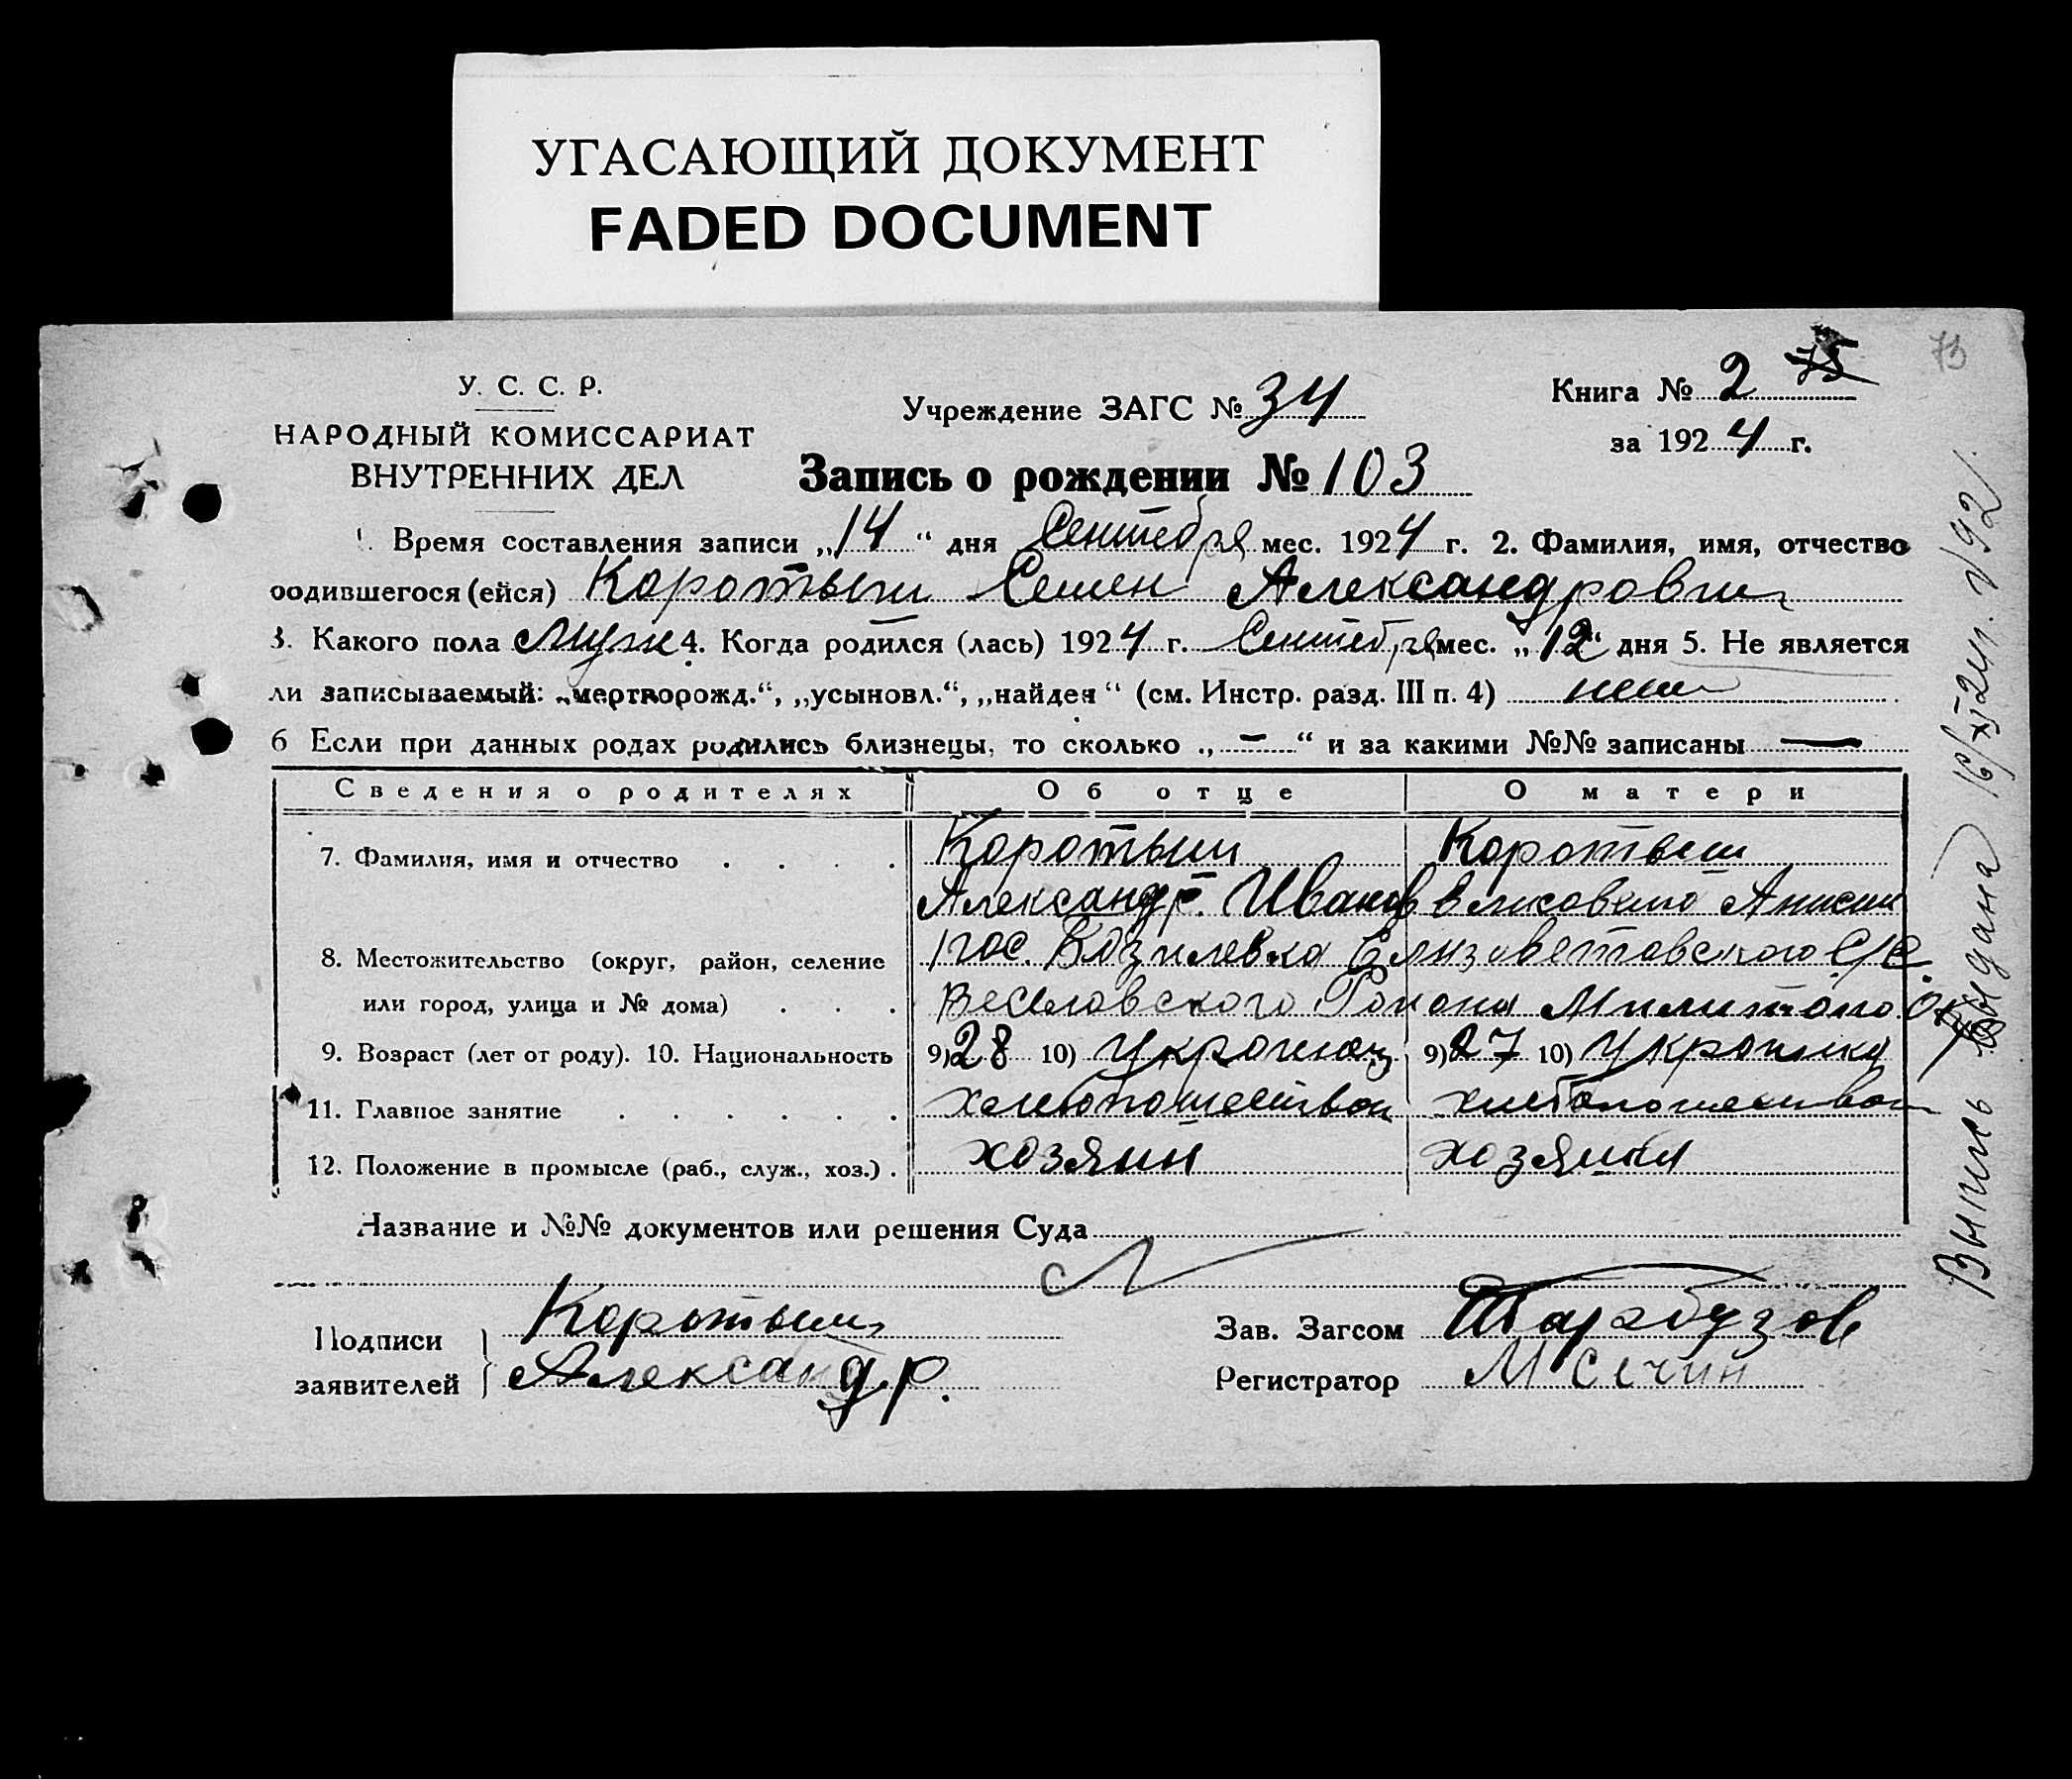 УГАСАЮЩИЙ ДОКУМЕНТ
FADED DOCUMENT
73
У. С. С. Р.
НАРОДНЫЙ КОМИССАРИАТ
ВНУТРЕННИХ ДЕЛ
Учреждение ЗАГС № 34
Книга № 2 75
за 1924 г.
Запись о рождении № 103
1. Время составления записи „14“ дня Сентебря мес. 1924 г. 2. Фамилия, имя, отчество
родившегося (ейся) Коротыш Семен Александрович
3. Какого пола Муж 4. Когда родился (лась) 1924 г. Сентебря мес. „12“ дня 5. Не является
ли записываемый: „мертворожд.“, „усыновл.“, „найден“ (см. Инстр. разд. III п. 4) нет
6 Если при данных родах родились близнецы, то сколько „—“ и за какими №№ записаны —
Сведения о родителях Об отце О матери
7. Фамилия, имя и отчество . . . . Коротыш Коротыш
Александр. Иванов
8. Местожительство (округ, район, селение пос. Елизаветовского с/с.
или город, улица и № дома) . . . Веселовского Района Мелитопо. Окр
9. Возраст (лет от роду). 10. Национальность 9) 28 10) Украинец 9) 27 10) Украинка
11. Главное занятие . . . . . .
12. Положение в промысле (раб., служ., хоз.) . хозяин хозяика
Название и №№ документов или решения Суда
Подписи
заявителей
Коротыш
Александр.
Зав. Загсом
Регистратор М Сечин
Выпись Выдана 16/XI 24г. №92